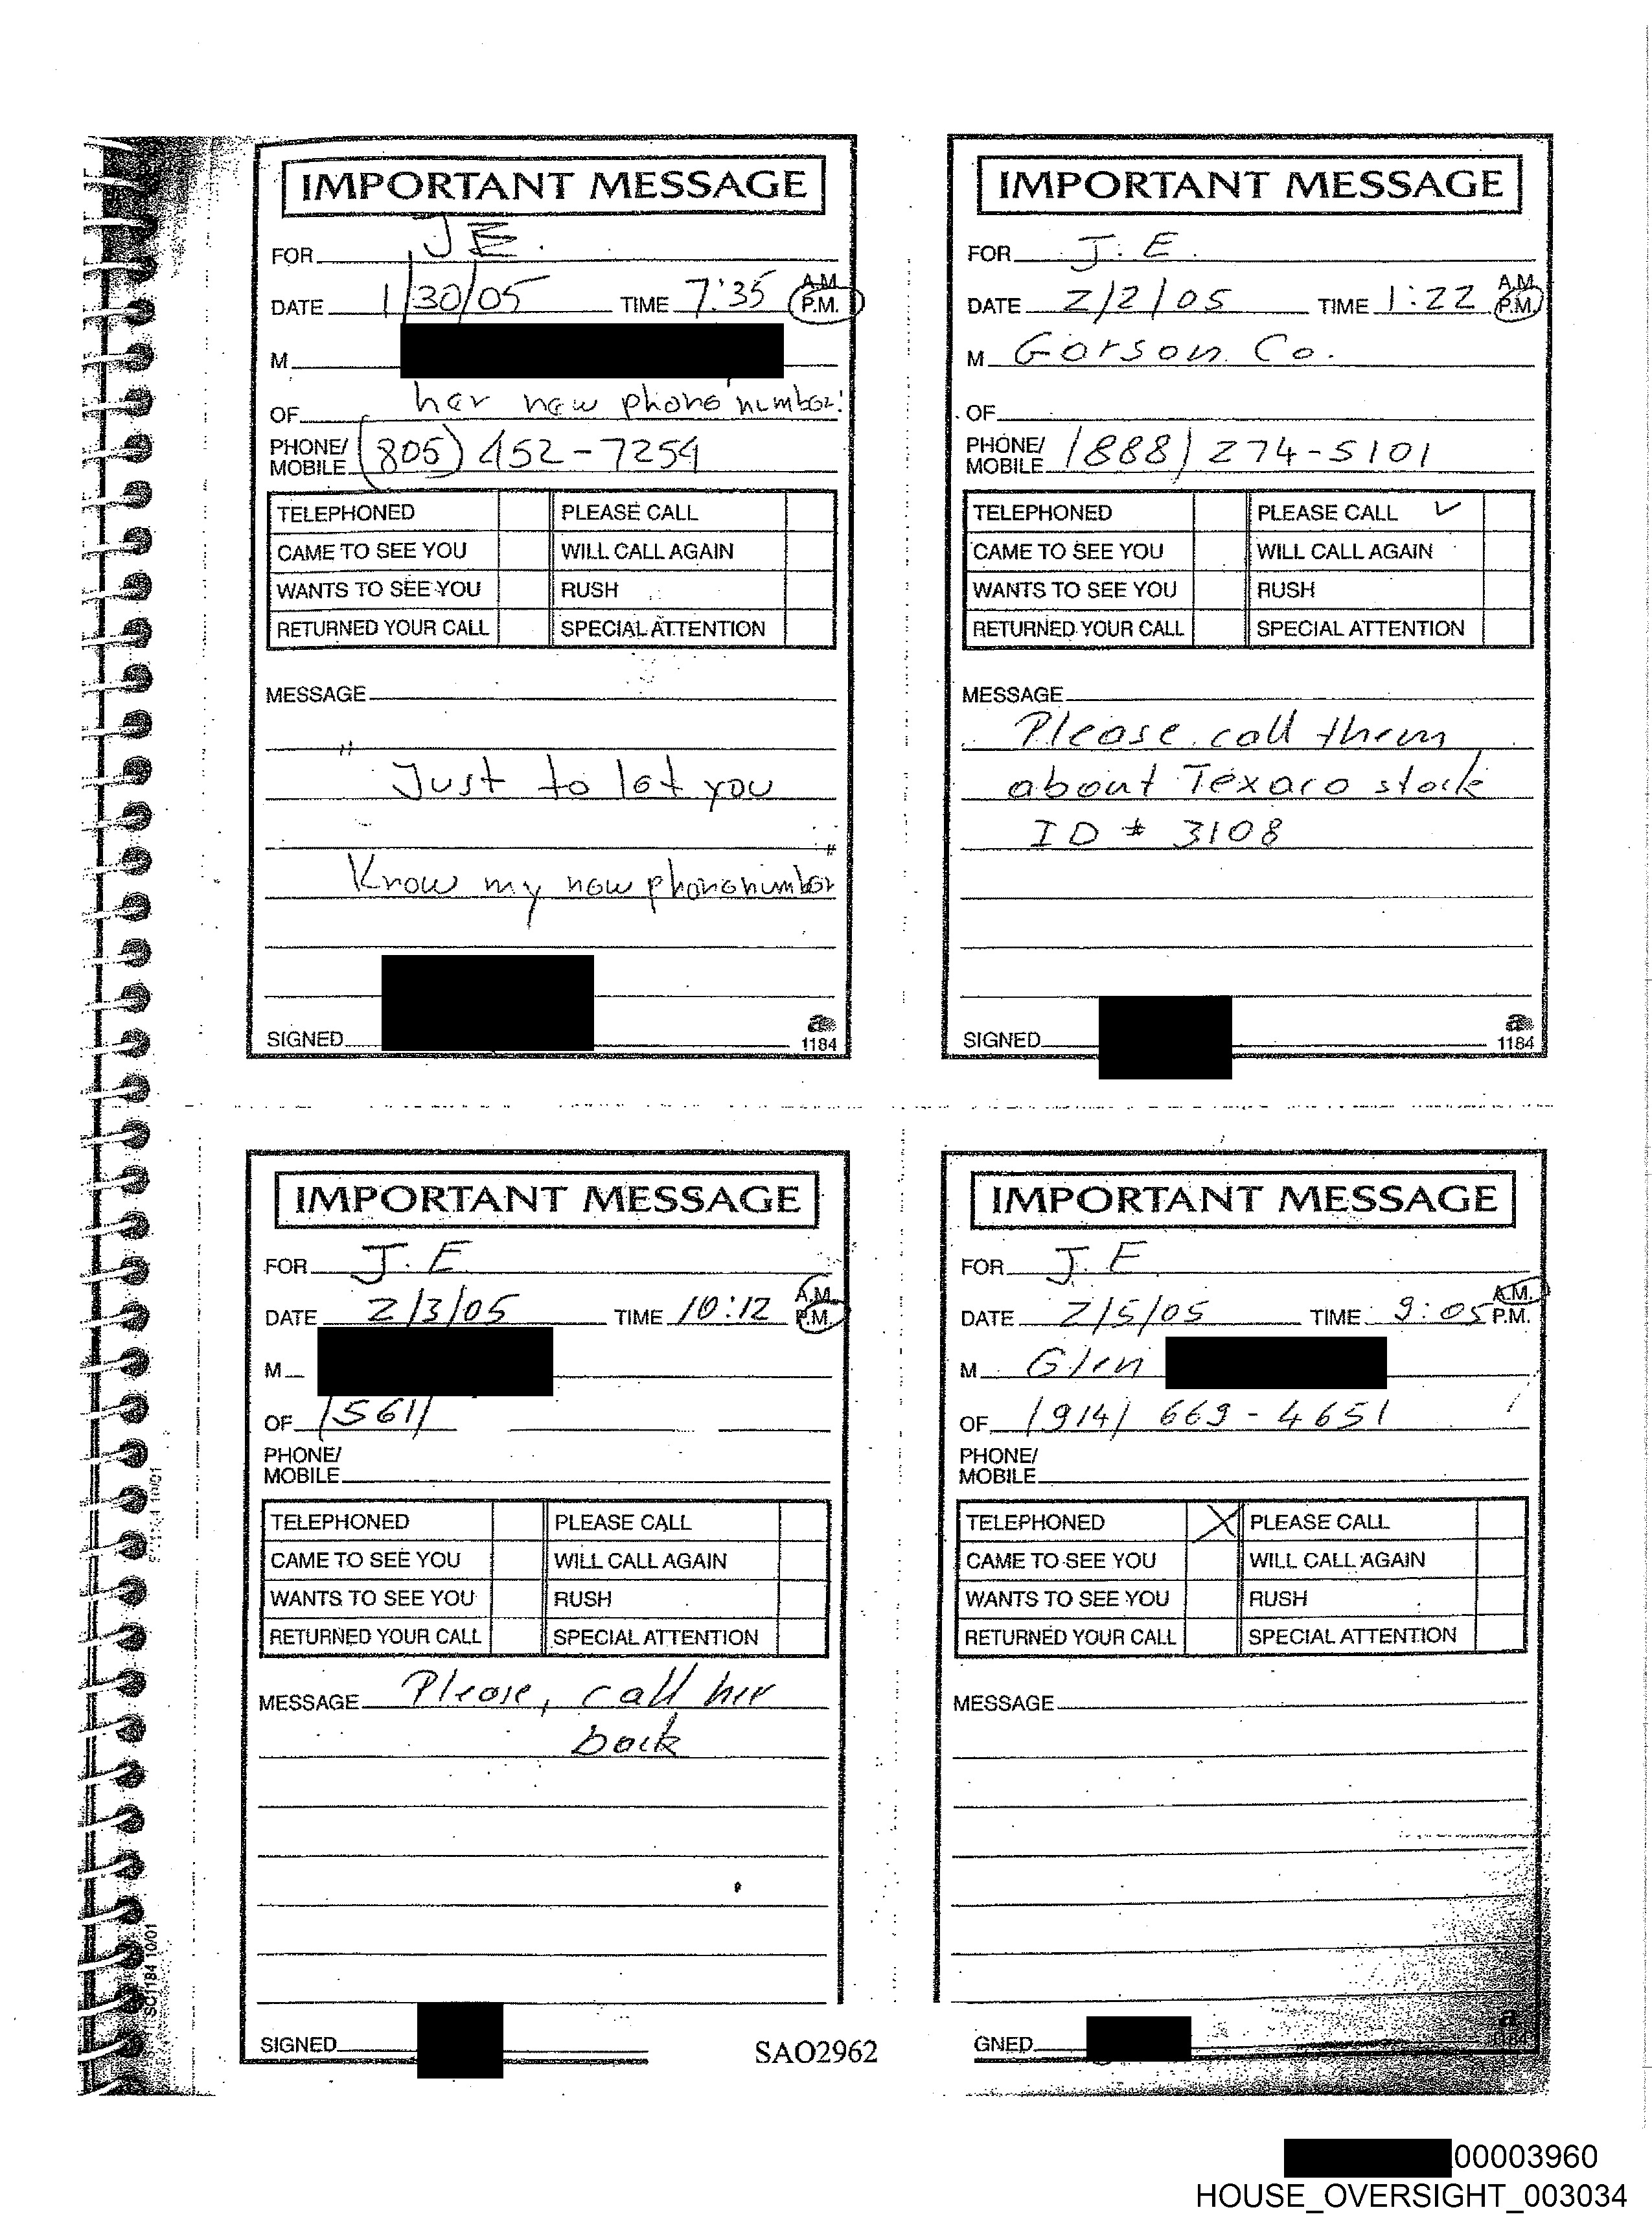 IMPORTANT MESSAGE
FOR J E.
DATE 1/30/05 TIME 7:35 A.M. P.M.
M
OF her new phone number:
PHONE/ MOBILE (805) 452-7254
TELEPHONED PLEASE CALL
CAME TO SEE YOU WILL CALL AGAIN
WANTS TO SEE YOU RUSH
RETURNED YOUR CALL SPECIAL ATTENTION
MESSAGE
" Just to let you
Know my new phone number "
SIGNED
a 1184
IMPORTANT MESSAGE
FOR J. E.
DATE 2/2/05 TIME 1:22 A.M. P.M.
M Gorson Co.
OF
PHONE/ MOBILE (888) 274-5101
TELEPHONED PLEASE CALL ✓
CAME TO SEE YOU WILL CALL AGAIN
WANTS TO SEE YOU RUSH
RETURNED YOUR CALL SPECIAL ATTENTION
MESSAGE
Please call them
about Texaco stock
ID # 3108
SIGNED
a 1184
IMPORTANT MESSAGE
FOR J. E
DATE 2/3/05 TIME 10:12 A.M. P.M.
M
OF (561)
PHONE/ MOBILE
TELEPHONED PLEASE CALL
CAME TO SEE YOU WILL CALL AGAIN
WANTS TO SEE YOU RUSH
RETURNED YOUR CALL SPECIAL ATTENTION
MESSAGE Please, call her
back
SIGNED
SC1184 10/01
IMPORTANT MESSAGE
FOR J. E
DATE 2/5/05 TIME 9:05 A.M. P.M.
M Glen
OF (914) 669-4651
PHONE/ MOBILE
TELEPHONED X PLEASE CALL
CAME TO SEE YOU WILL CALL AGAIN
WANTS TO SEE YOU RUSH
RETURNED YOUR CALL SPECIAL ATTENTION
MESSAGE
GNED
a 1184
SAO2962
00003960
HOUSE_OVERSIGHT_003034